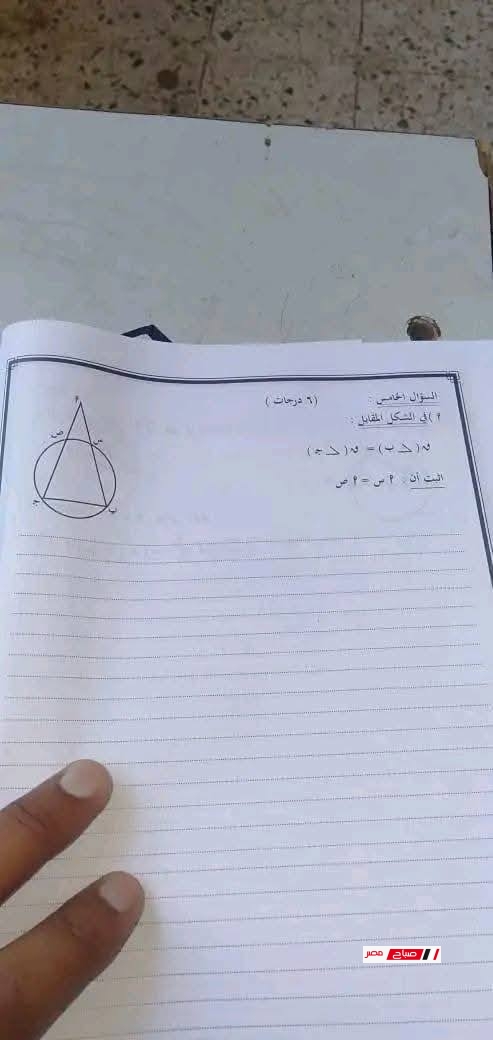 السؤال الخامس : (٦ درجات )
٢ ) في الشكل المقابل :
ق ( ∠ ب ) = ق ( ∠ جـ )
اثبت أن : ٢ س = ٢ ص
٢
ص
س
جـ
ب
صباح مصر